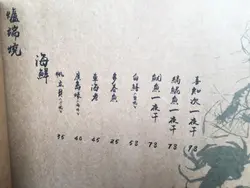 爐端燒
海鮮
喜知次一夜干 98
縞鯛魚一夜干 78
魷魚一夜干 78
白鱔 58
多春魚 25
車海老 45
廣島蠔 40
帆立貝 35